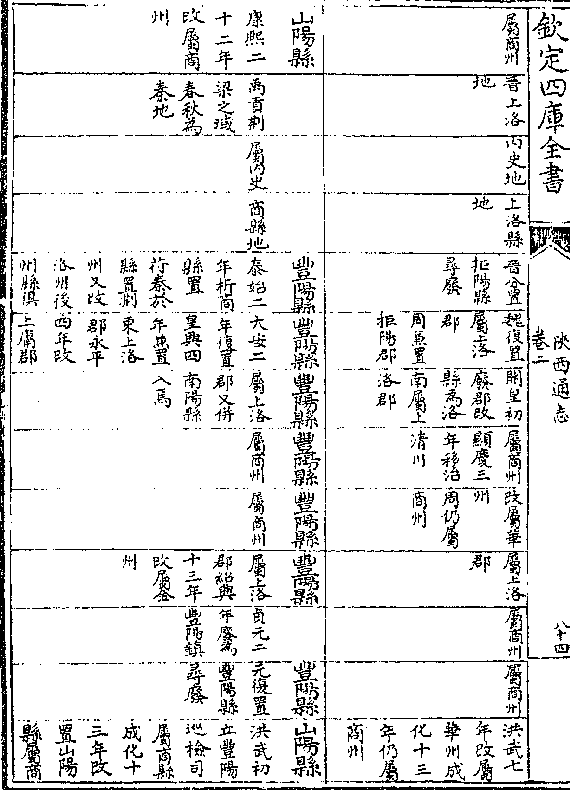 欽定四庫全書
陝西通志
卷二
八十四
屬商州
晋上洛
地
内史地
上洛縣
地
晉分置
拒陽縣
尋廢
魏復置
屬上洛
郡
周兼置
拒陽郡
開皇初
廢郡改
縣為洛
南屬上
洛郡
屬商州
顯慶三
年移治
清川
改屬華
州
周仍屬
商州
屬上洛
郡
屬商州
屬商州
洪武七
年改屬
華州成
化十三
年仍屬
商州
山陽縣
康熙二
十二年
改屬商
州
禹貢荆
梁之域
春秋為
秦地
屬内史
商縣地
豐陽縣
泰始二
年析商
縣置
苻秦於
縣置荆
州又改
洛州後
州縣俱
豐陽縣
太安二
年復置
皇興四
年兼置
東上洛
郡永平
四年改
上庸郡
豐陽縣
屬上洛
郡又併
南陽縣
入焉
豐陽縣
屬商州
豐陽縣
屬商州
豐陽縣
屬上洛
郡紹興
十三年
改屬金
州
貞元二
年廢為
豐陽鎮
豐陽縣
元復置
豐陽縣
尋廢
山陽縣
洪武初
立豐陽
巡檢司
屬商縣
成化十
三年改
置山陽
縣屬商